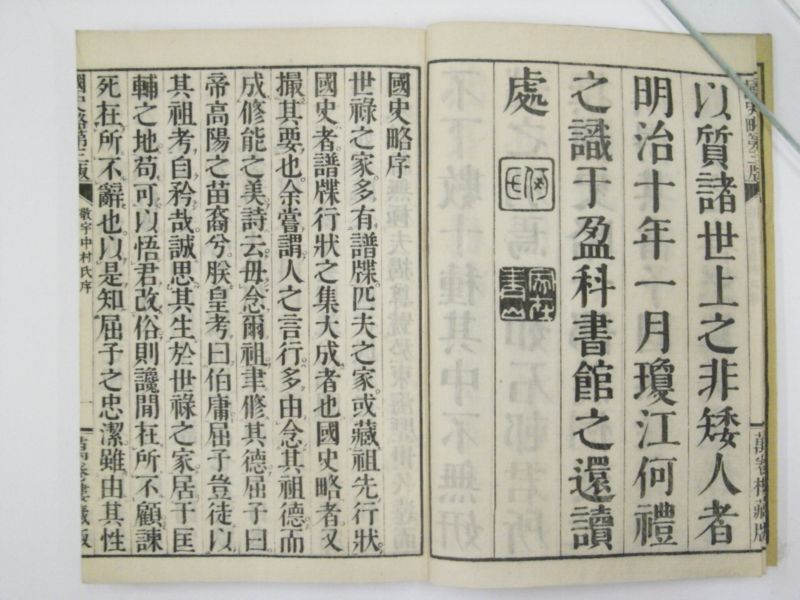 以質諸世上之非矮人者
明治十年一月瓊江何禮
之識于盈科書館之還讀
處
國史略序
世祿之家多有譜牒匹夫之家或藏祖先行狀
國史者譜牒行狀之集大成者也國史略者又
撮其要也余嘗謂人之言行多由念其祖德而
成修能之美詩云毋念爾祖聿修其德屈子曰
帝高陽之苗裔兮朕皇考曰伯庸屈子豈徒以
其祖考自矜哉誠思其生於世祿之家居于匡
輔之地苟可以悟君改俗則讒間在所不顧諫
死在所不辭也以是知屈子之忠潔雖由其性
國史略第三版
敬宇中村氏序
一